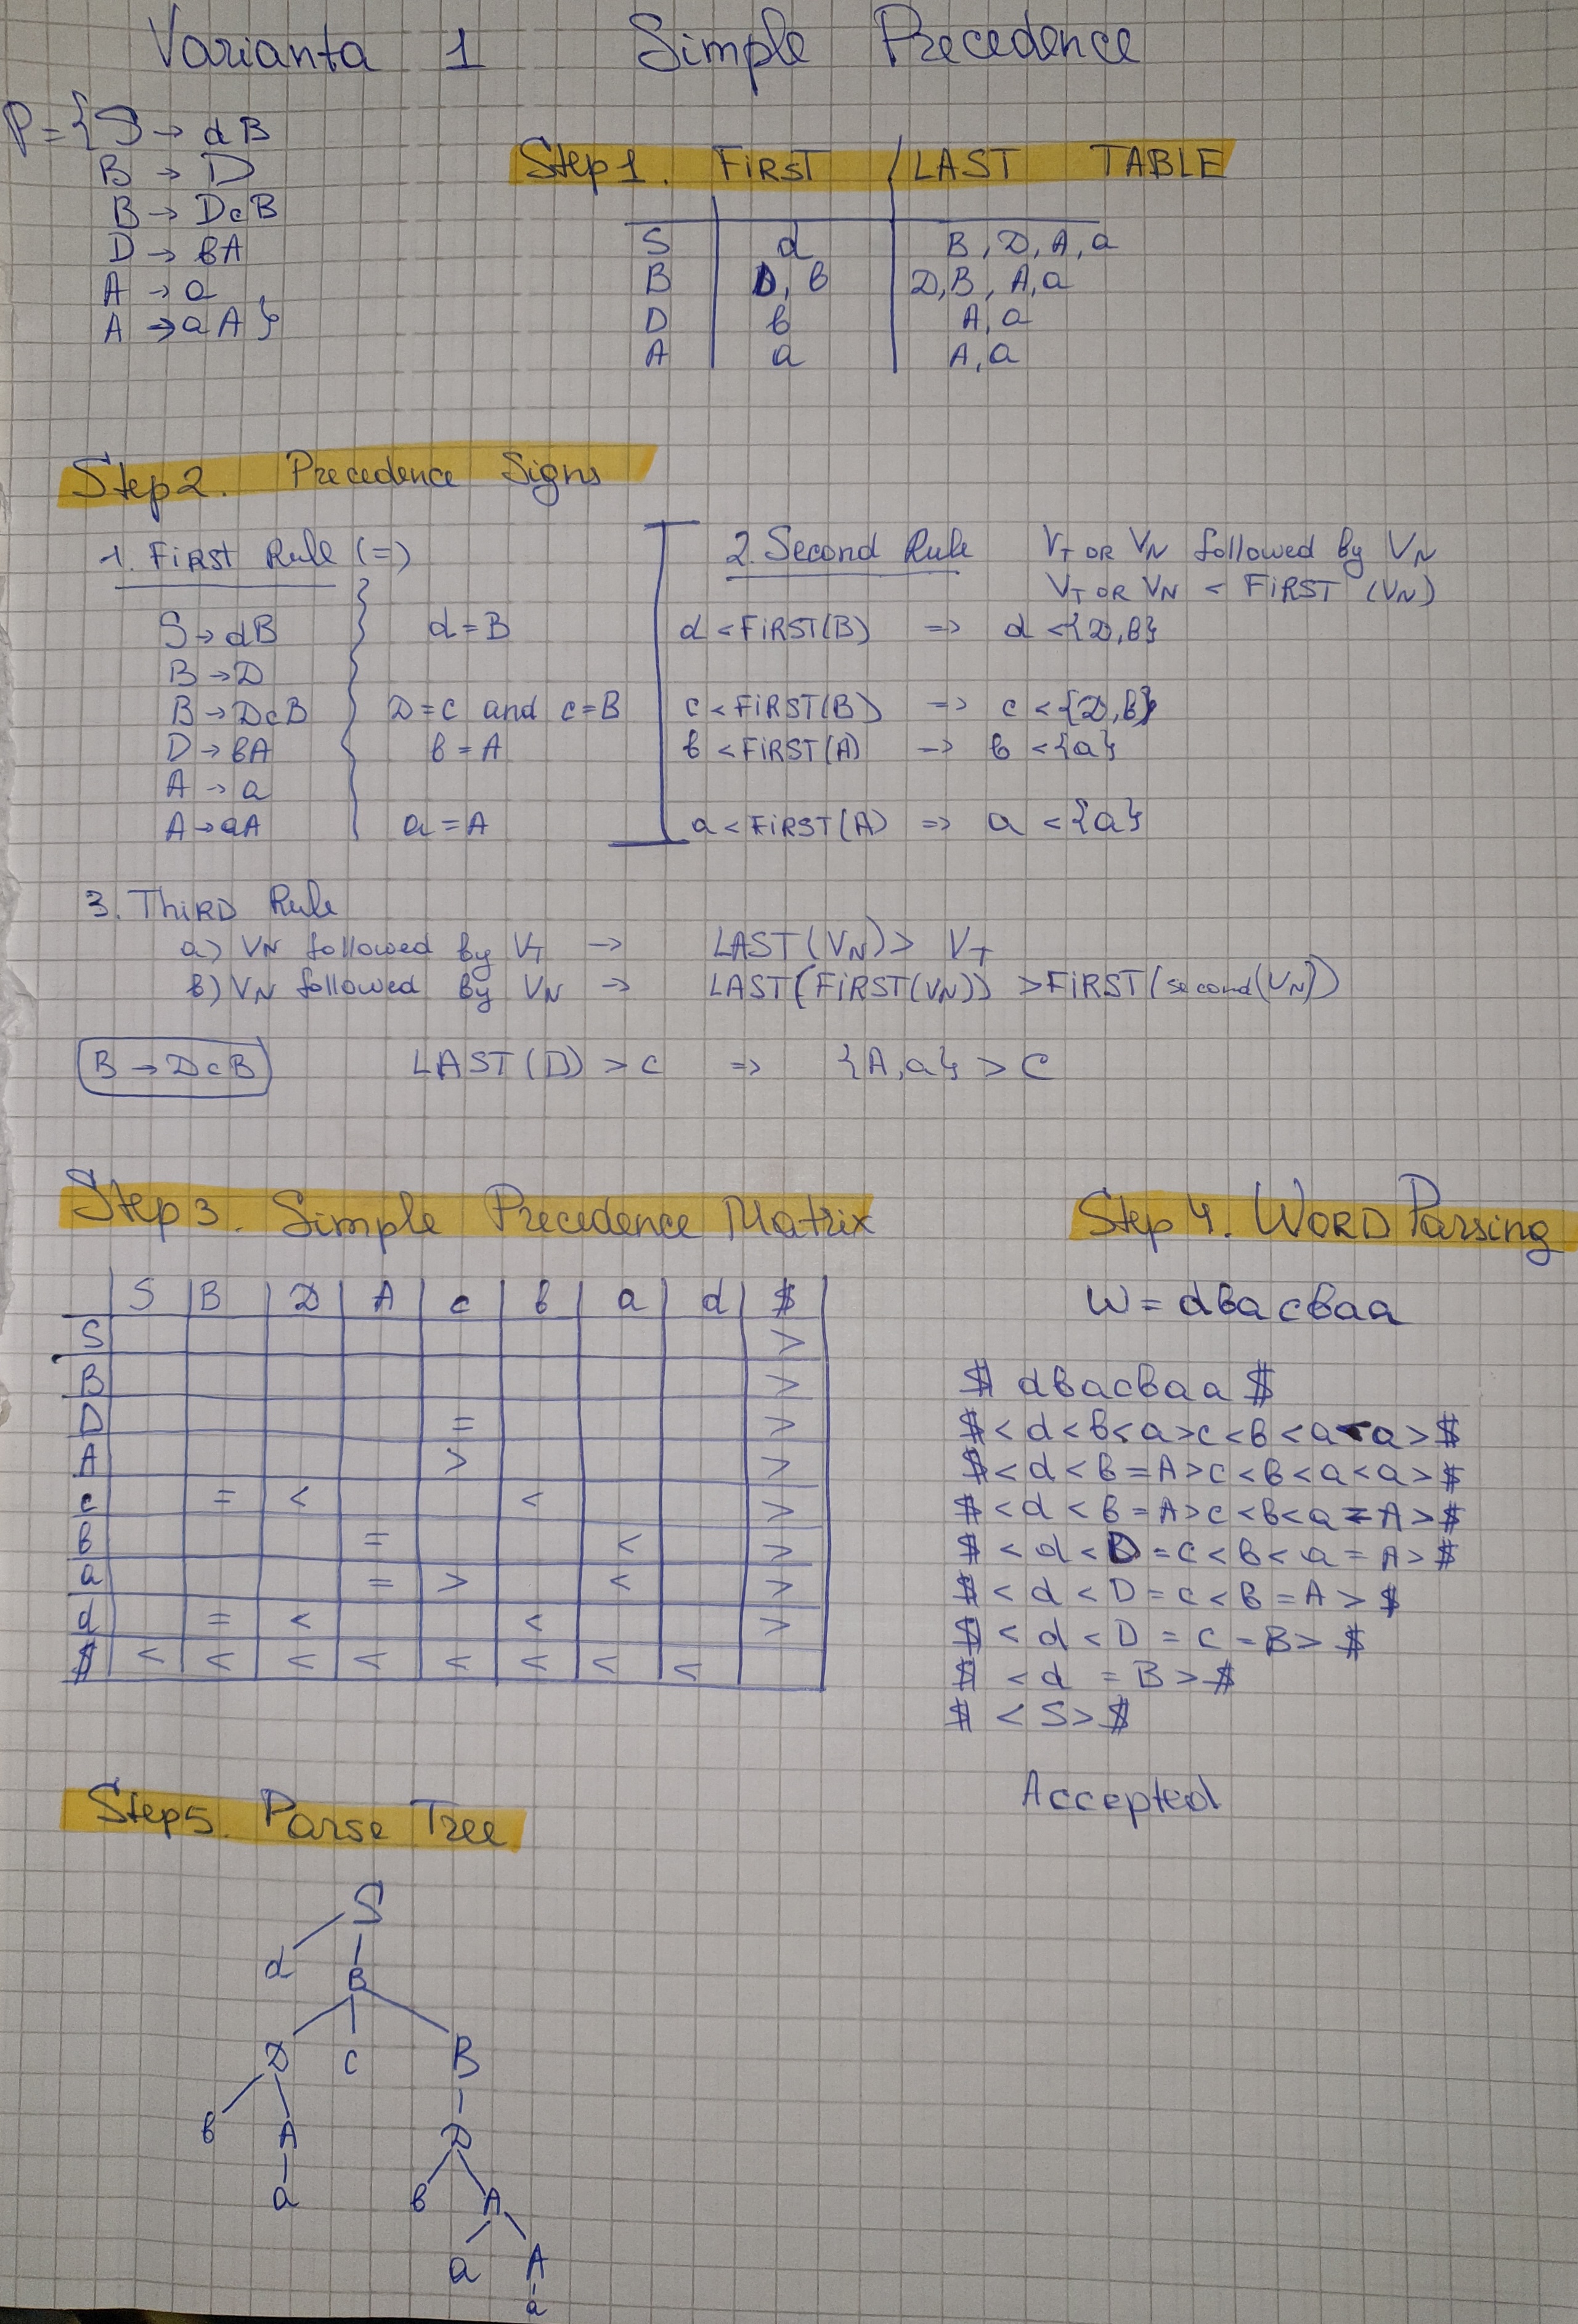 Varianta 1 Simple Precedence
P = { S → dB
B → D
B → DcB
D → bA
A → a
A → aA }
Step 1. FIRST / LAST TABLE
S | d | B, D, A, a
B | D, b | D, B, A, a
D | b | A, a
A | a | A, a
Step 2. Precedence Signs
1. First Rule (=)
S → dB d = B
B → D
B → DcB D = c and c = B
D → bA b = A
A → a
A → aA a = A
2. Second Rule VT OR VN followed by VN
VT OR VN < FIRST (VN)
d < FIRST(B) => d < {D, b}
c < FIRST(B) => c < {D, b}
b < FIRST(A) => b < {a}
a < FIRST(A) => a < {a}
3. Third Rule
a) VN followed by VT → LAST(VN) > VT
b) VN followed by VN → LAST(FIRST(VN)) > FIRST(second(VN))
B → DcB LAST(D) > c => {A, a} > c
Step 3. Simple Precedence Matrix
S | B | D | A | c | b | a | d | $
S | | | | | | | | | >
B | | | | | | | | | >
D | | | | | = | | | | >
A | | | | | > | | | | >
c | | = | < | | | < | | | >
b | | | | = | | | < | | >
a | | | | = | > | | < | | >
d | | = | < | | | < | | | >
$ | < | < | < | < | < | < | < | < |
Step 4. WORD Parsing
W = dbacbaa
$ dbacbaa $
$ < d < b < a > c < b < a < a > $
$ < d < b = A > c < b < a < a > $
$ < d < b = A > c < b < a = A > $
$ < d < D = c < b < a = A > $
$ < d < D = c < b = A > $
$ < d < D = c = B > $
$ < d = B > $
$ < S > $
Accepted
Step 5. Parse Tree
S
d
B
D c B
b A D
a b A
a A
a